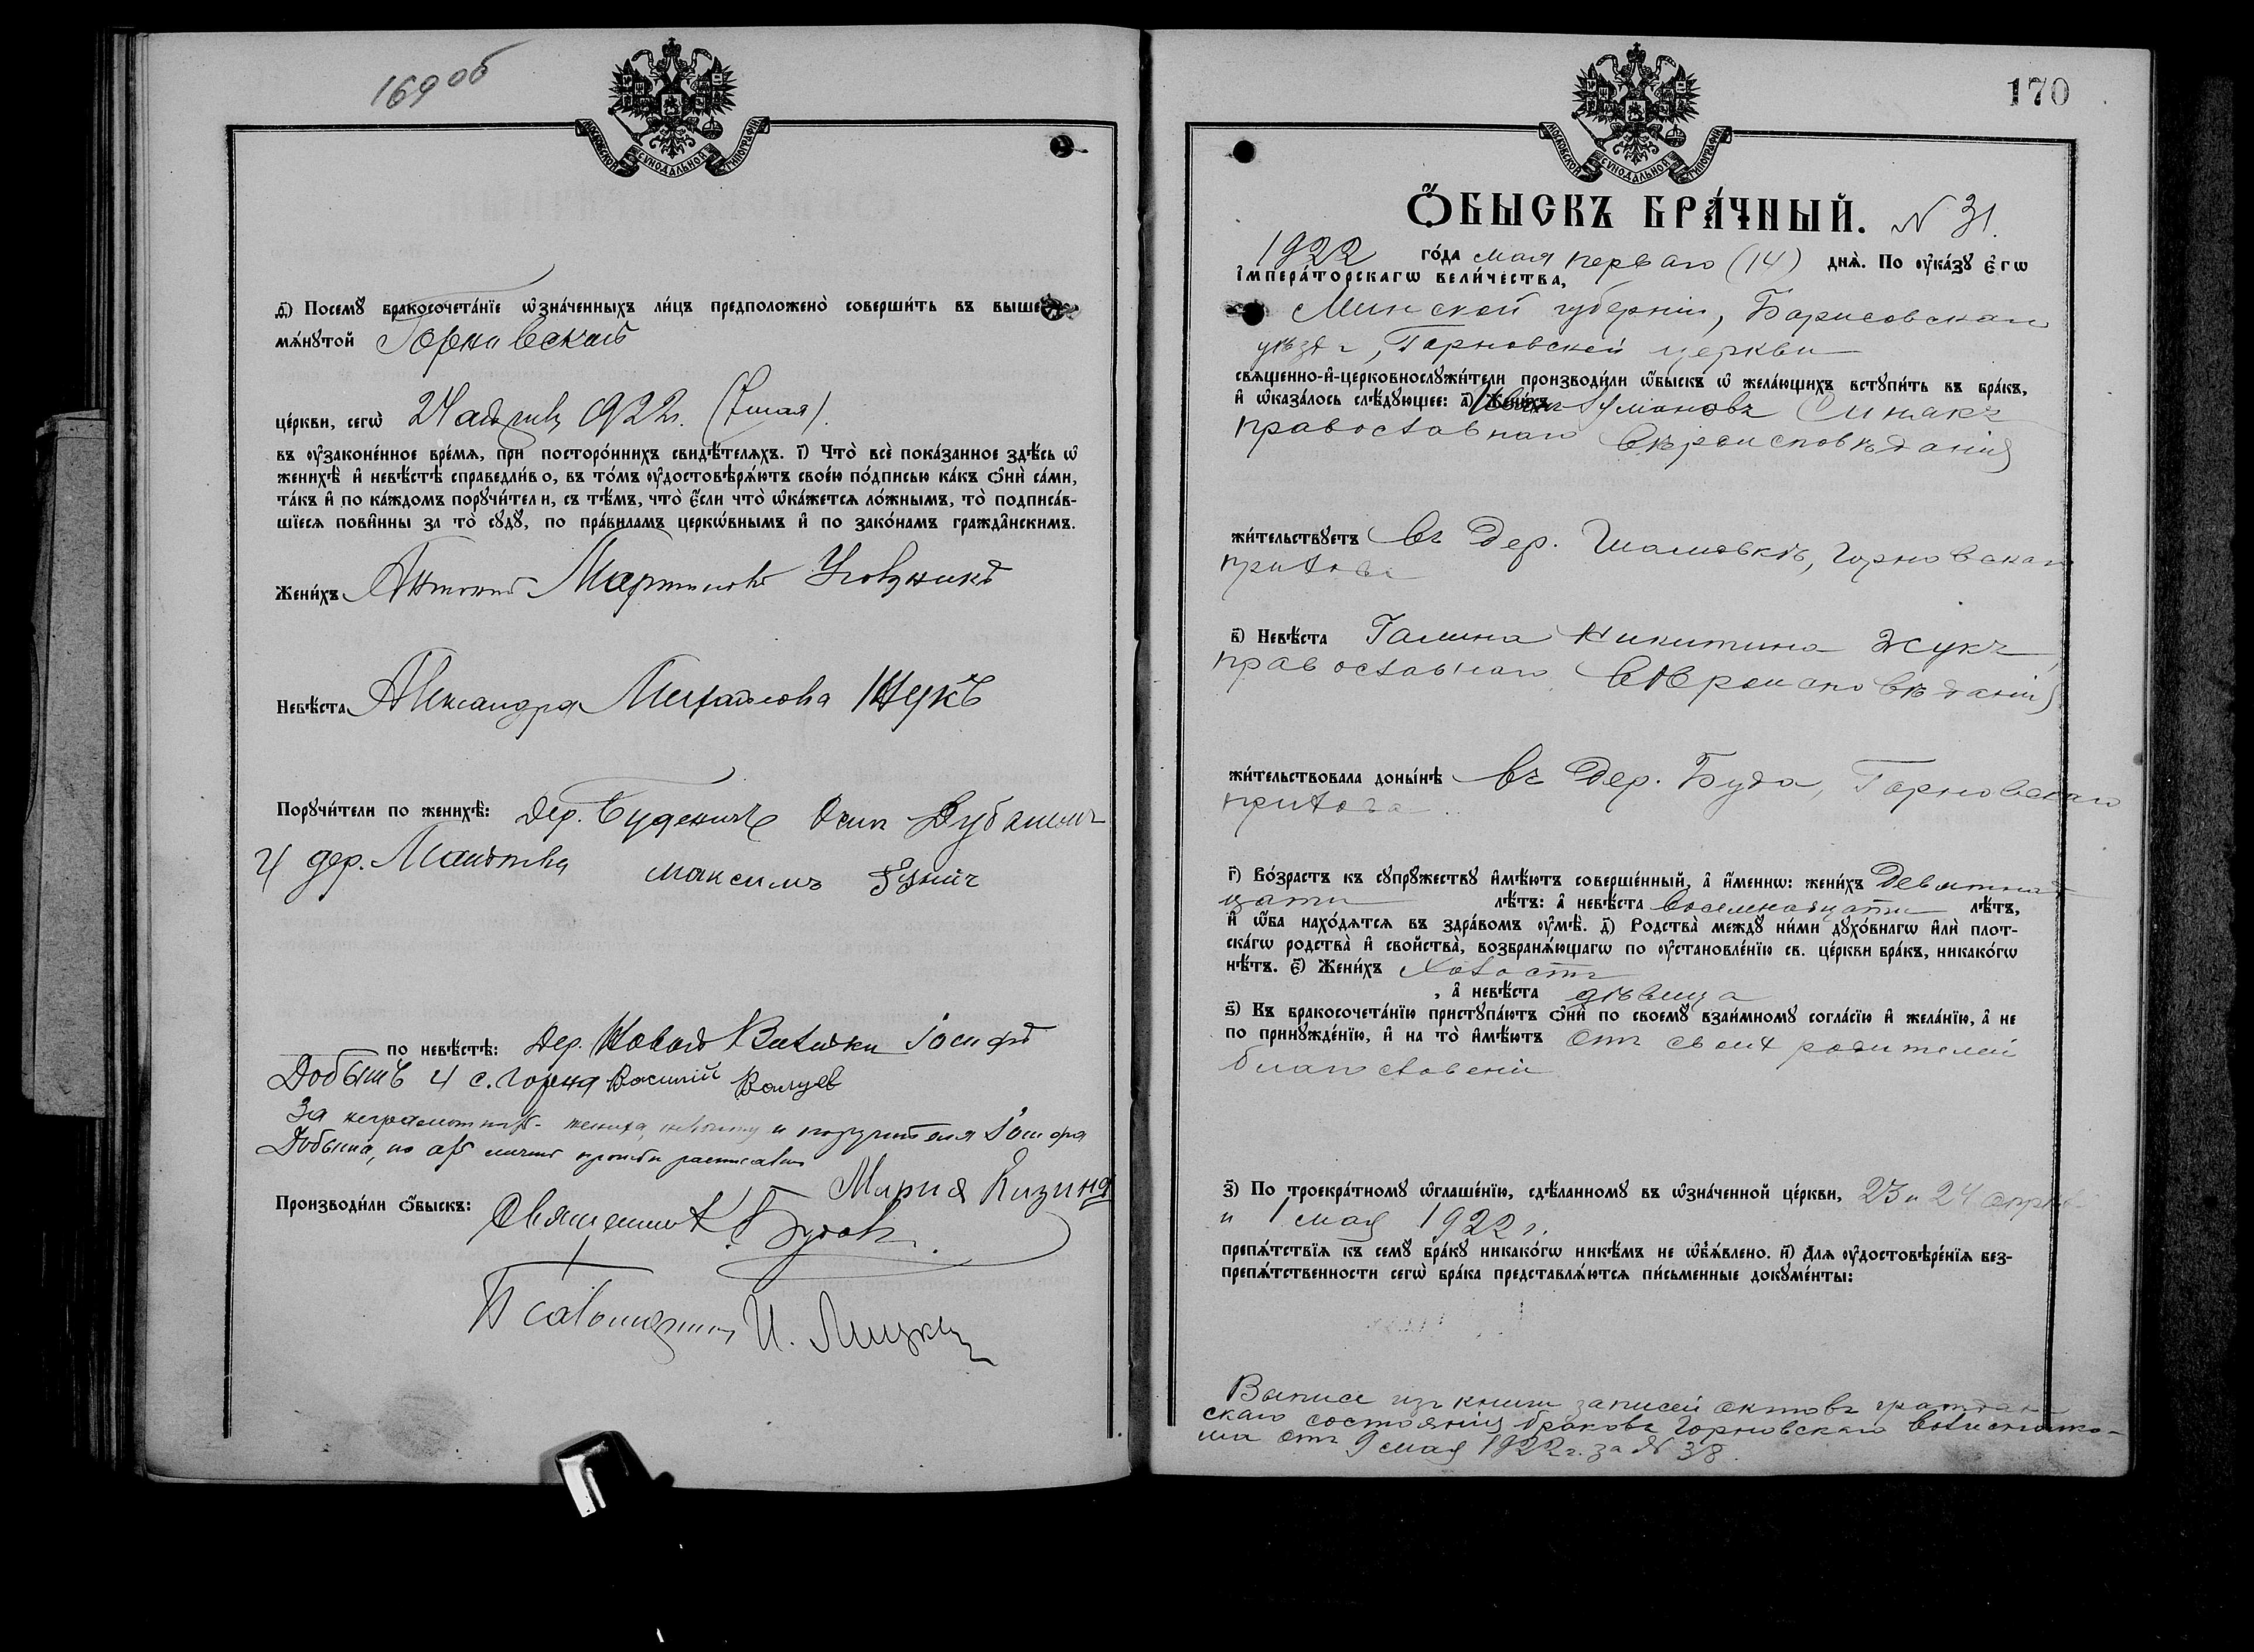 169 об
МОСКОВСКОЙ СУНОДАЛЬНОЙ ТИПОГРАФІИ
д҃) Посемꙋ̀ бракосочета́нїе ѡ҆зна́ченныхъ ли́цъ предположено̀ соверши́ть въ выше
мѧ́нꙋтой Горновской
це́ркви, сегѡ̀ 24 апрѣля 1922 г. (7 мая).
въ ᲂу҆зако́ненное вре́мѧ, при посторо́ннихъ свидѣ́телѧхъ. і҃) Что̀ всѐ пока́занное здѣ́сь ѡ҆
женихѣ̀ и҆ невѣ́стѣ справедли́во, въ то́мъ ᲂу҆достовѣрѧ́ютъ свое́ю по́дписью ка́къ ѻ҆нѝ са́ми,
та́къ и҆ по ка́ждомъ порꙋчи́тели, съ тѣ́мъ, что̀ є҆́сли что̀ ѡ҆ка́жетсѧ ло́жнымъ, то̀ подписа́в-
шїесѧ пови́нны за то̀ сꙋдꙋ̀, по пра́виламъ церко́внымъ и҆ по зако́намъ гражда́нскимъ.
Жени́хъ Антоній Мартиновъ
Невѣ́ста Александра Михайлова Жукъ
Порꙋчи́тели по женихѣ̀: дер. Буденичъ Осип
и дер. максимъ
по невѣ́стѣ: дер. Новой Іосифъ
Добышъ и с. Горна Василій Валуев
За неграмотныхъ жениха, невѣсту и поручителя Іосифа
Добыша, по ихъ личной просьбѣ росписалась
Мария Кизина
Производи́ли ѻ҆́быскъ: Священник
Псаломщикъ И. Мицкевичъ
170
МОСКОВСКОЙ СУНОДАЛЬНОЙ ТИПОГРАФІИ
Ѻ҆́БЫСКЪ БРА́ЧНЫЙ. N 31.
1922 го́да мая перваго (14) днѧ̀. По ᲂу҆ка́зꙋ є҆гѡ̀
і҆мпера́торскагѡ вели́чества,
Минской губерніи, Борисовскаго
уѣзда, Горновской церкви
свѧще́нно-и҆-церковнослꙋжи́тели производи́ли ѻ҆́быскъ ѡ҆ жела́ющихъ встꙋпи́ть въ бра́къ,
и҆ ѡ҆каза́лось слѣ́дꙋющее: а҃) Жени́хъ Иванъ Синакъ
православнаго вѣроисповѣданія
жи́тельствꙋетъ въ дер. Шамовкѣ, Горновскаго
прихода
в҃) Невѣ́ста Галина Никитина Жукъ,
православнаго вѣроисповѣданія
жи́тельствовала доны́нѣ въ дер. Буда, Горновскаго
прихода
г҃) Во́зрастъ къ сꙋпрꙋ́жествꙋ и҆мѣ́ютъ соверше́нный, а҆ и҆́меннѡ: жени́хъ Девятнад
цати лѣ́тъ: а҆ невѣ́ста восемнадцати лѣ́тъ,
и҆ ѻ҆́ба нахо́дѧтсѧ въ здра́вомъ ᲂу҆мѣ̀. д҃) Родства̀ междꙋ̀ ни́ми дꙋхо́внагѡ и҆лѝ пло́т-
ска́гѡ родства̀ и҆ свойства̀, возбранѧ́ющагѡ по ᲂу҆становле́нїю св. це́ркви бра́къ, никако́гѡ
нѣ́тъ. є҃) Жени́хъ холостъ
, а҆ невѣ́ста дѣвица
ѕ҃) Къ бракосочета́нїю пристꙋпа́ютъ ѻ҆нѝ по своемꙋ̀ взаи́мномꙋ согла́сїю и҆ жела́нїю, а҆ не
по принꙋжде́нїю, и҆ на то̀ и҆мѣ́ютъ отъ своих родителей
благословеніе
з҃) По троекра́тномꙋ ѡ҆глаше́нїю, сдѣ́ланномꙋ въ ѡ҆зна́ченной це́ркви, 23 и 24 апрѣля
и 1 мая 1922 г.
препѧ́тствїѧ къ семꙋ̀ бра́кꙋ никако́гѡ никѣ́мъ не ѡ҆б̾ѧ́влено. и҃) Для ᲂу҆достовѣре́нїѧ без-
препѧ́тственности сегѡ̀ бра́ка представлѧ́ютсѧ пи́сьменные докꙋме́нты:
Выпись изъ книги записей актовъ граждан
скаго состоянія браковъ Горновскаго волисполко-
ма отъ 9 мая 1922 г. за № 38.